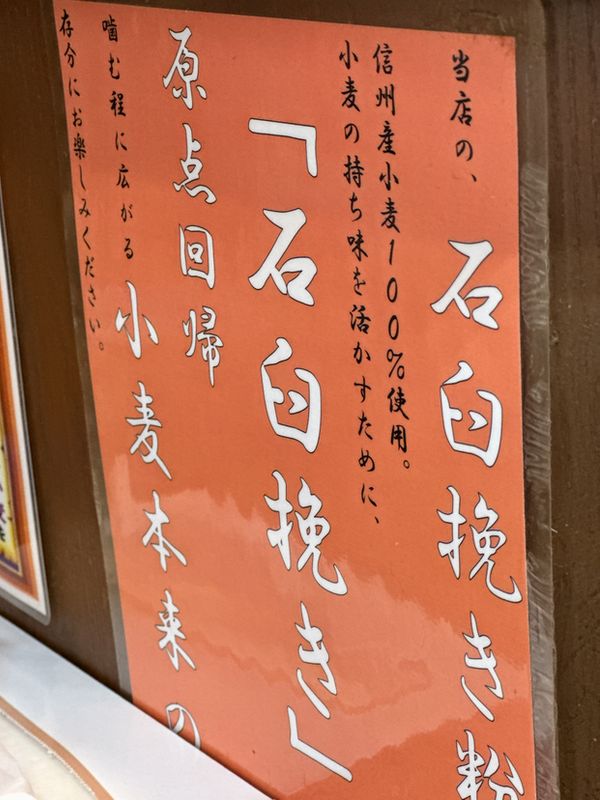 当店の、
石臼挽き粉
信州産小麦100%使用。
小麦の持ち味を活かすために、
「石臼挽き」
原点回帰
小麦本来の
噛む程に広がる
存分にお楽しみください。